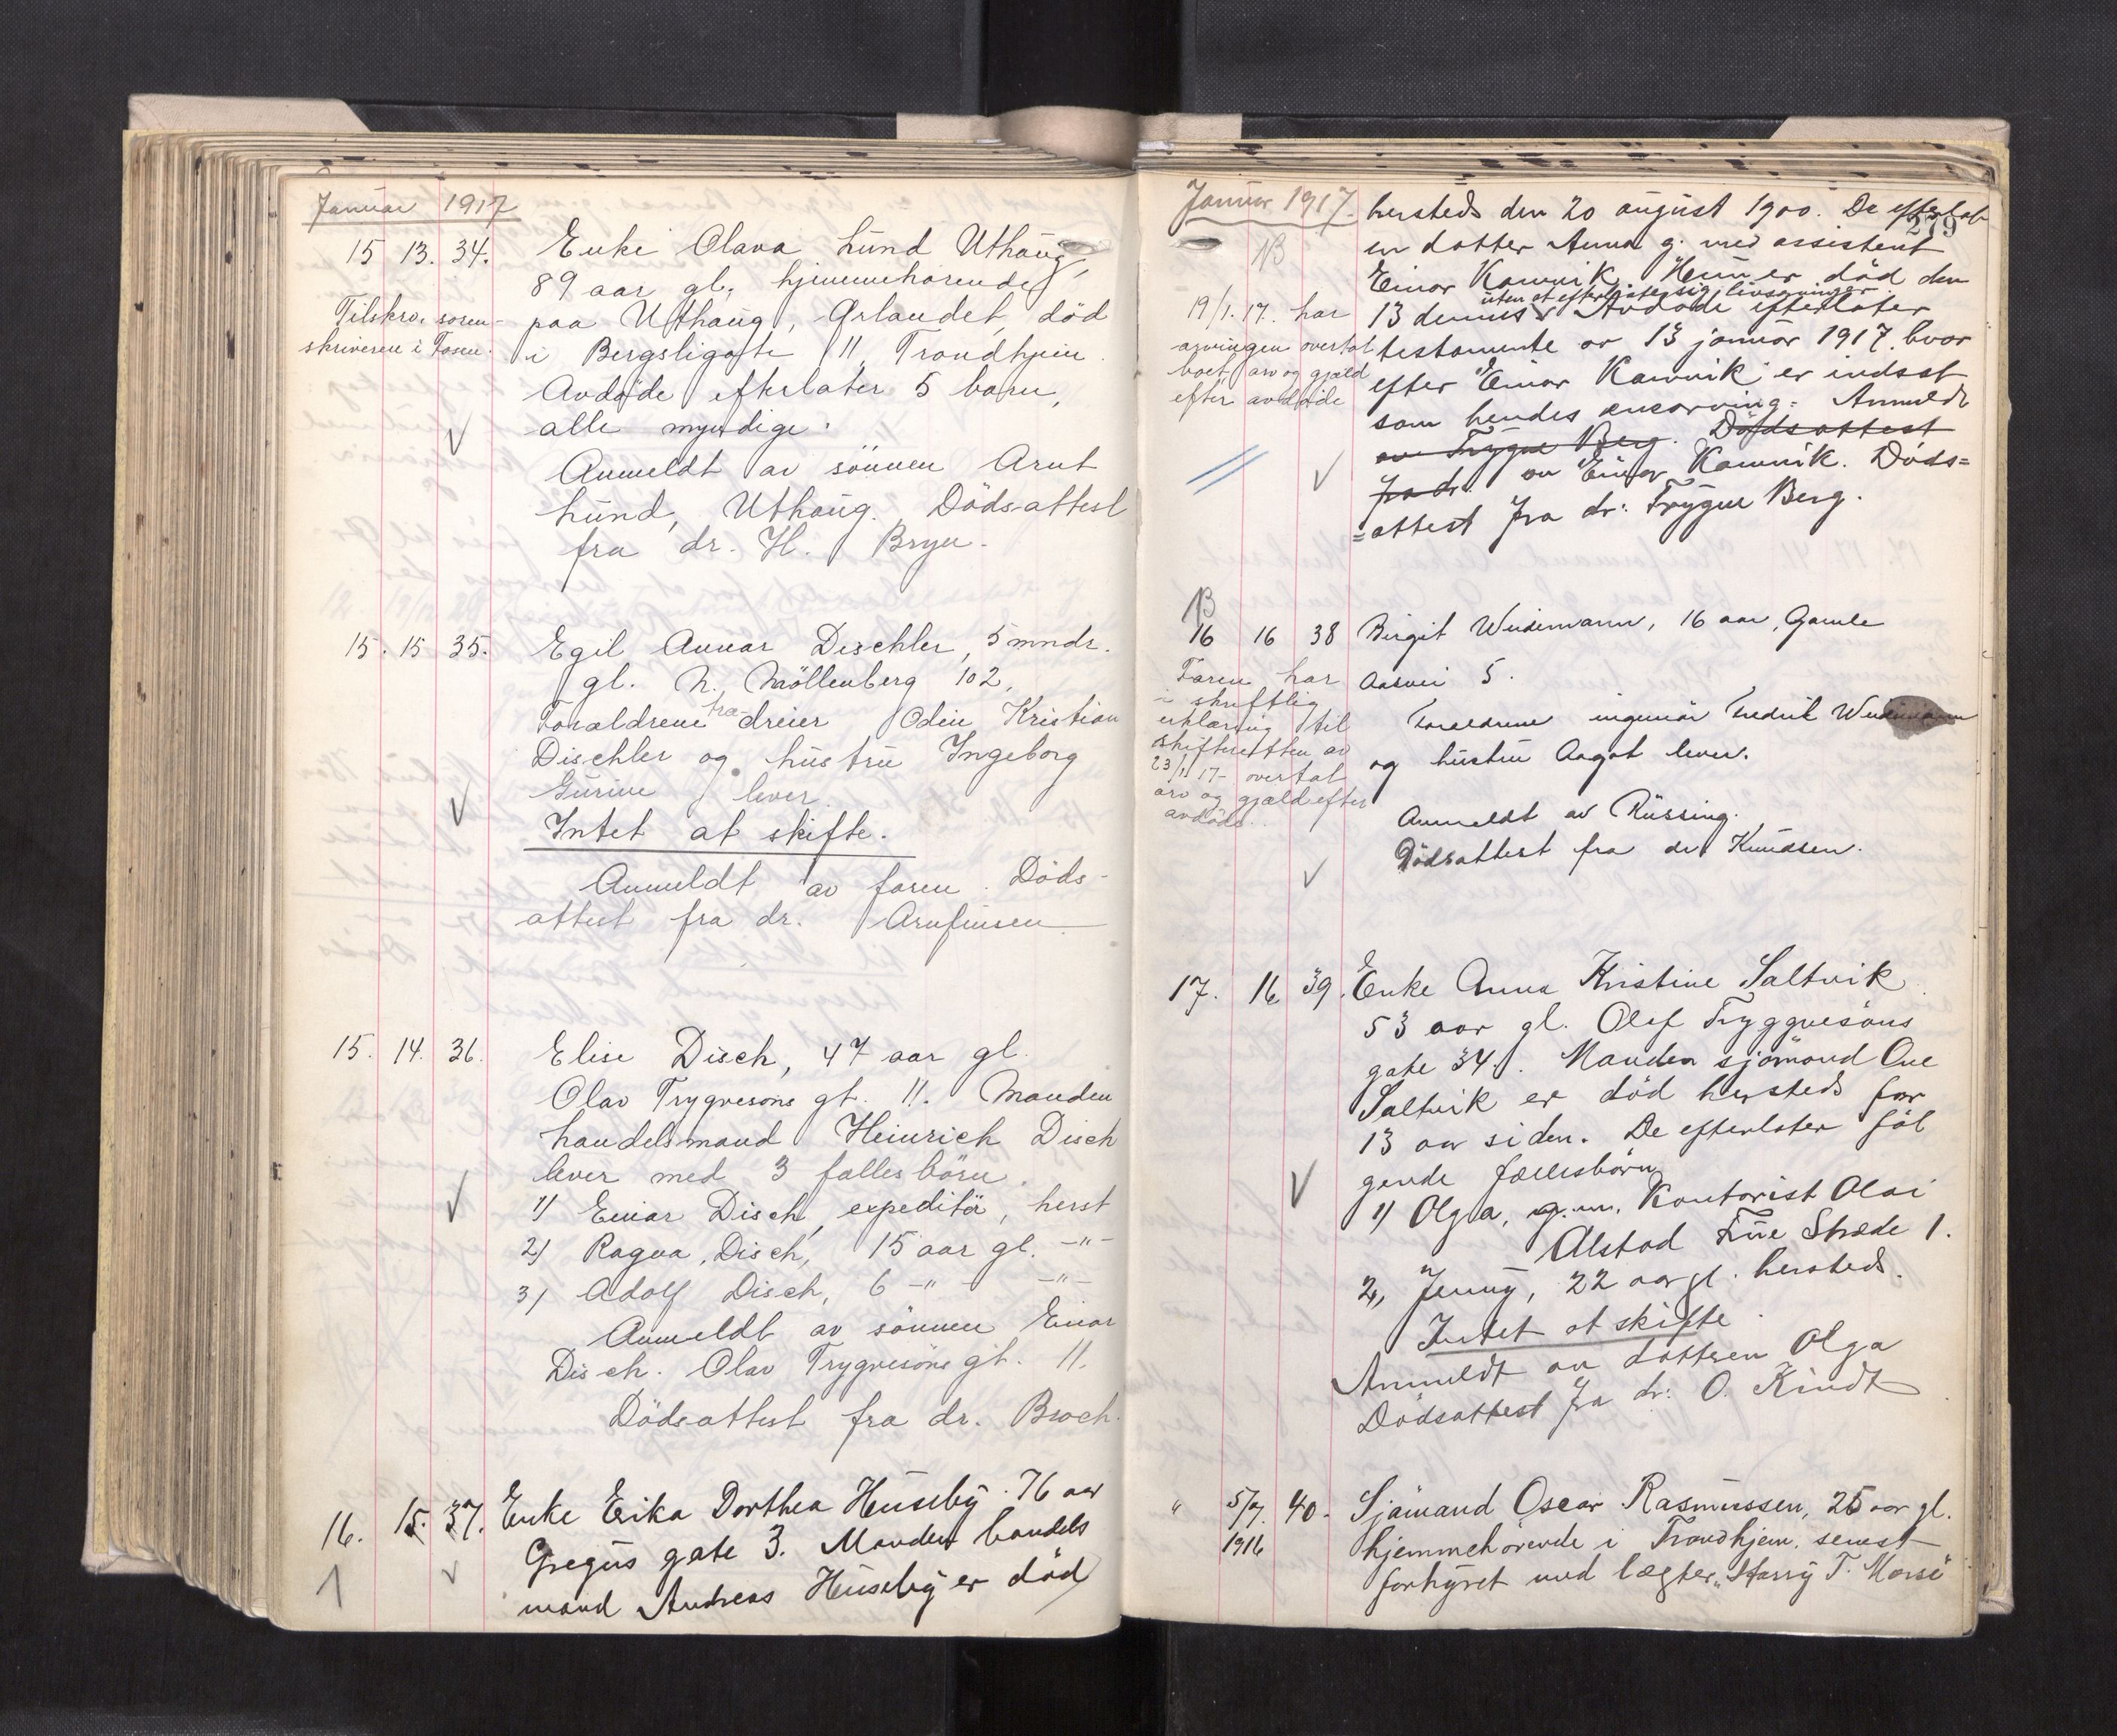 Januar 1917
15 13. 34. Enke Olava Lund Uthaug,
89 aar gl. hjemmehørende
Tilskr. soren-
skriveren i Fosen.
paa Uthaug, Ørlandet, død
i Bergsligate 11, Trondhjem.
Avdøde efterlater 5 barn,
alle myndige.
Anmeldt av sønnen Arnt
Lund, Uthaug. Dødsattest
fra dr. H. Bryn.
15. 15 35. Egil Annar Dischler, 5 mndr.
gl. N. Möllenberg 102,
Forældrene træ-dreier Odin Kristian
Dischler og hustru Ingeborg
Gurine lever.
Intet at skifte.
Anmeldt av faren. Døds-
attest fra dr. Arnfinsen
15. 14. 36. Elise Disch, 47 aar gl.
Olav Trygvesons gt. 11. Manden
handelsmand Heinrich Disch
lever med 3 fælles börn.
1) Einar Disch, expeditör, herst
2) Ragna Disch, 15 aar gl. -"-
3) Adolf Disch, 6 -"- -"-
Anmeldt av sönnen Einar
Disch. Olav Trygvesöns gt. 11.
Dödsattest fra dr. Broch.
16. 15. 37. Enke Erika Dorthea Huseby 76 aar
Gregus gate 3. Manden handels
mand Andreas Huseby er død
Januar 1917.
279
hersteds den 20 august 1900. De efterlot
B
en datter Anna g. med assistent
Einar Kamvik. Hun er død den
uten at efterlate sig livsarvinger
13 dennes Avdøde efterlater
testamente av 13 januar 1917, hvor
efter Einar Kamvik er indsat
som hendes enearving. Anmeldt
av Trygve Berg. Dødsattest
fra dr. av Einar Kamvik. Døds=
=attest fra dr. Trygve Berg.
19/1. 17. har
arvingen overtat
boet arv og gjæld
efter avdøde
B
16 16 38 Birgit Weidemann, 16 aar, Gamle
Aasvei 5.
Forældrene ingeniör Fredrik Weidemann
og hustru Aagot lever.
Anmeldt av Rüssing.
Dödsattest fra dr Knudsen.
Faren har
i skriftlig
erklæring til
skifteretten av
23/1 17- overtat
arv og gjæld efter
avdøde.
17. 16 39. Enke Anna Kristine Saltvik
53 aar gl. Olaf Tryggvesöns
gate 34. Manden sjömand Ove
Saltvik er död hersteds for
13 aar siden. De efterlater föl
gende fællesbörn
1) Olga, g.m. Kontorist Olai
Alstad Fûe Stræde 1.
2, Jenny, 22 aar gl. hersteds.
Intet at skifte
Anmeldt av datteren Olga
Dødsattest fra dr: O. Kindt
" 5/7. 1916 40. Sjømand Oscar Rasmussen, 25 aar gl.
hjemmehørende i Trondhjem, senest
forhyret med lægter "Harry T. Morse"